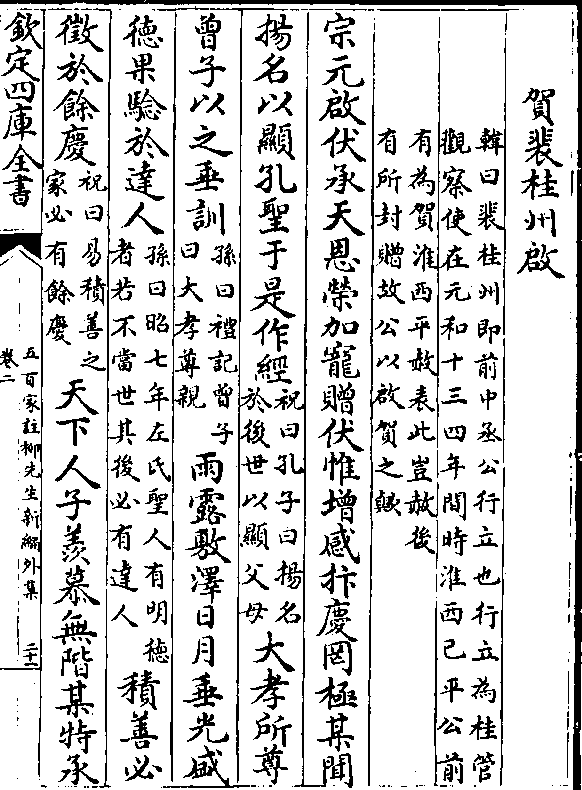 賀裴桂州啟
韓曰裴桂州即前中丞公行立也行立為桂管
觀察使在元和十三四年間時淮西已平公前
有為賀淮西平赦表此豈赦後
有所封贈故公以啟賀之歟
宗元啟伏承天恩榮加寵贈伏惟增感抃慶罔極某聞
揚名以顯孔聖于是作經
祝曰孔子曰揚名
於後世以顯父母
大孝所尊
曾子以之垂訓
孫曰禮記曾子
曰大孝尊親
雨露敷澤日月垂光盛
德果驗於達人
孫曰昭七年左氏聖人有明德
者若不當世其後必有達人
積善必
徵於餘慶
祝曰易積善之
家必有餘慶
天下人子羨慕無階某特承
欽定四庫全書
五百家註柳先生新編外集
卷二
二十一